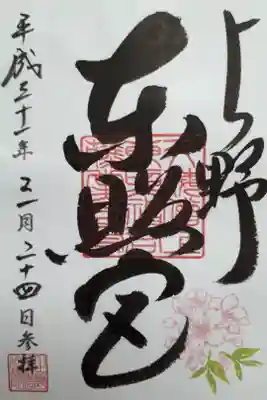 上野
東照宮
平成三十一年二月二十四日参拝